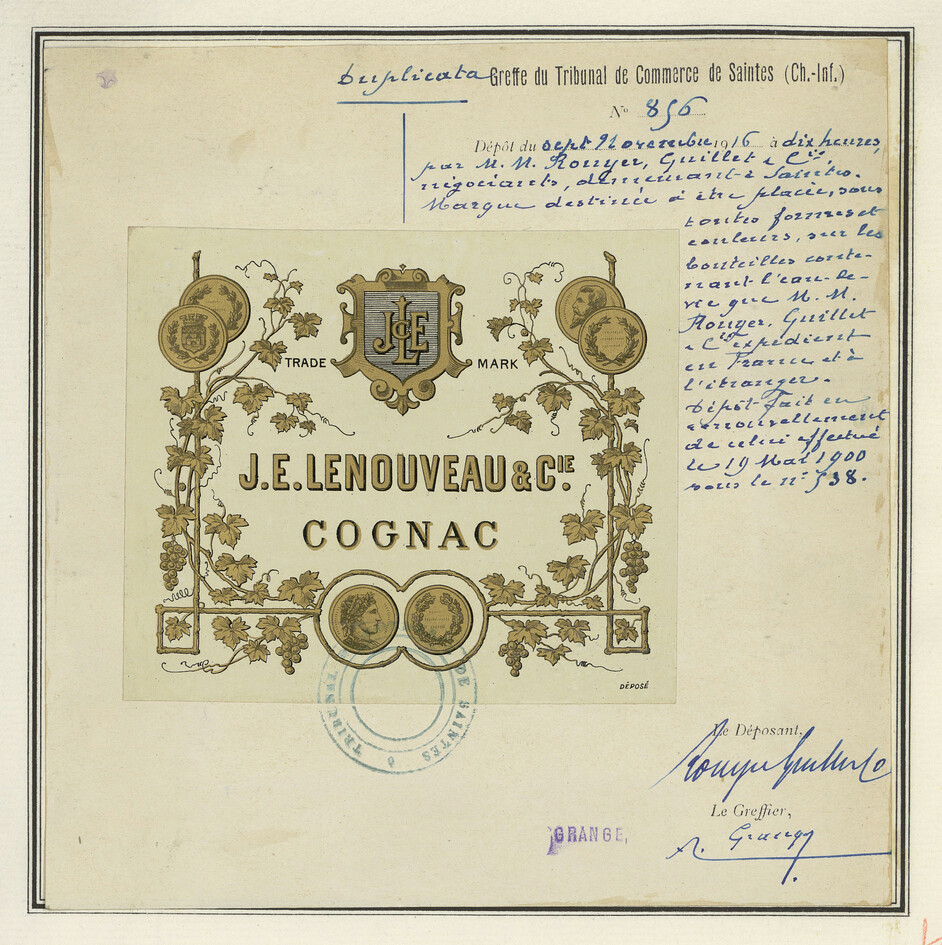 Duplicata Greffe du Tribunal de Commerce de Saintes (Ch.-Inf.)
N° 856
Dépôt du sept Novembre 1916 à dix heures,
par M. M. Rouyer, Guillet & Cie,
négociants, demeurant à Saintes.
Marque destinée à être placée, sous
toutes formes et
couleurs, sur les
bouteilles conte-
nant l'eau-de-
vie que M. M.
Rouyer, Guillet
& Cie expédient
en France et à
l'étranger.
Dépôt fait en
renouvellement
de celui effectué
le 19 Mai 1900
sous le n° 538.
JLE & C
TRADE MARK
J.E. LENOUVEAU & CIE.
COGNAC
DÉPOSÉ
TRIBUNAL DE SAINTES
Le Déposant,
Rouyer Guillet & Co
Le Greffier,
GRANGE,
A. Grange